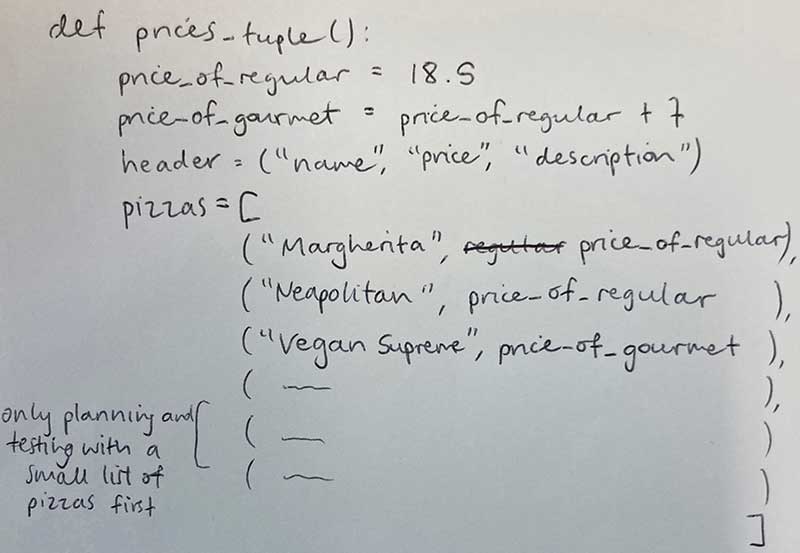 def prices_tuple():
price_of_regular = 18.5
price_of_gourmet = price_of_regular + 7
header = ("name", "price", "description")
pizzas = [
("Margherita", regular price_of_regular),
("Neapolitan", price_of_regular ),
("Vegan Supreme", price_of_gourmet ),
( — ),
( — )
( — )
]
only planning and
testing with a
small list of
pizzas first